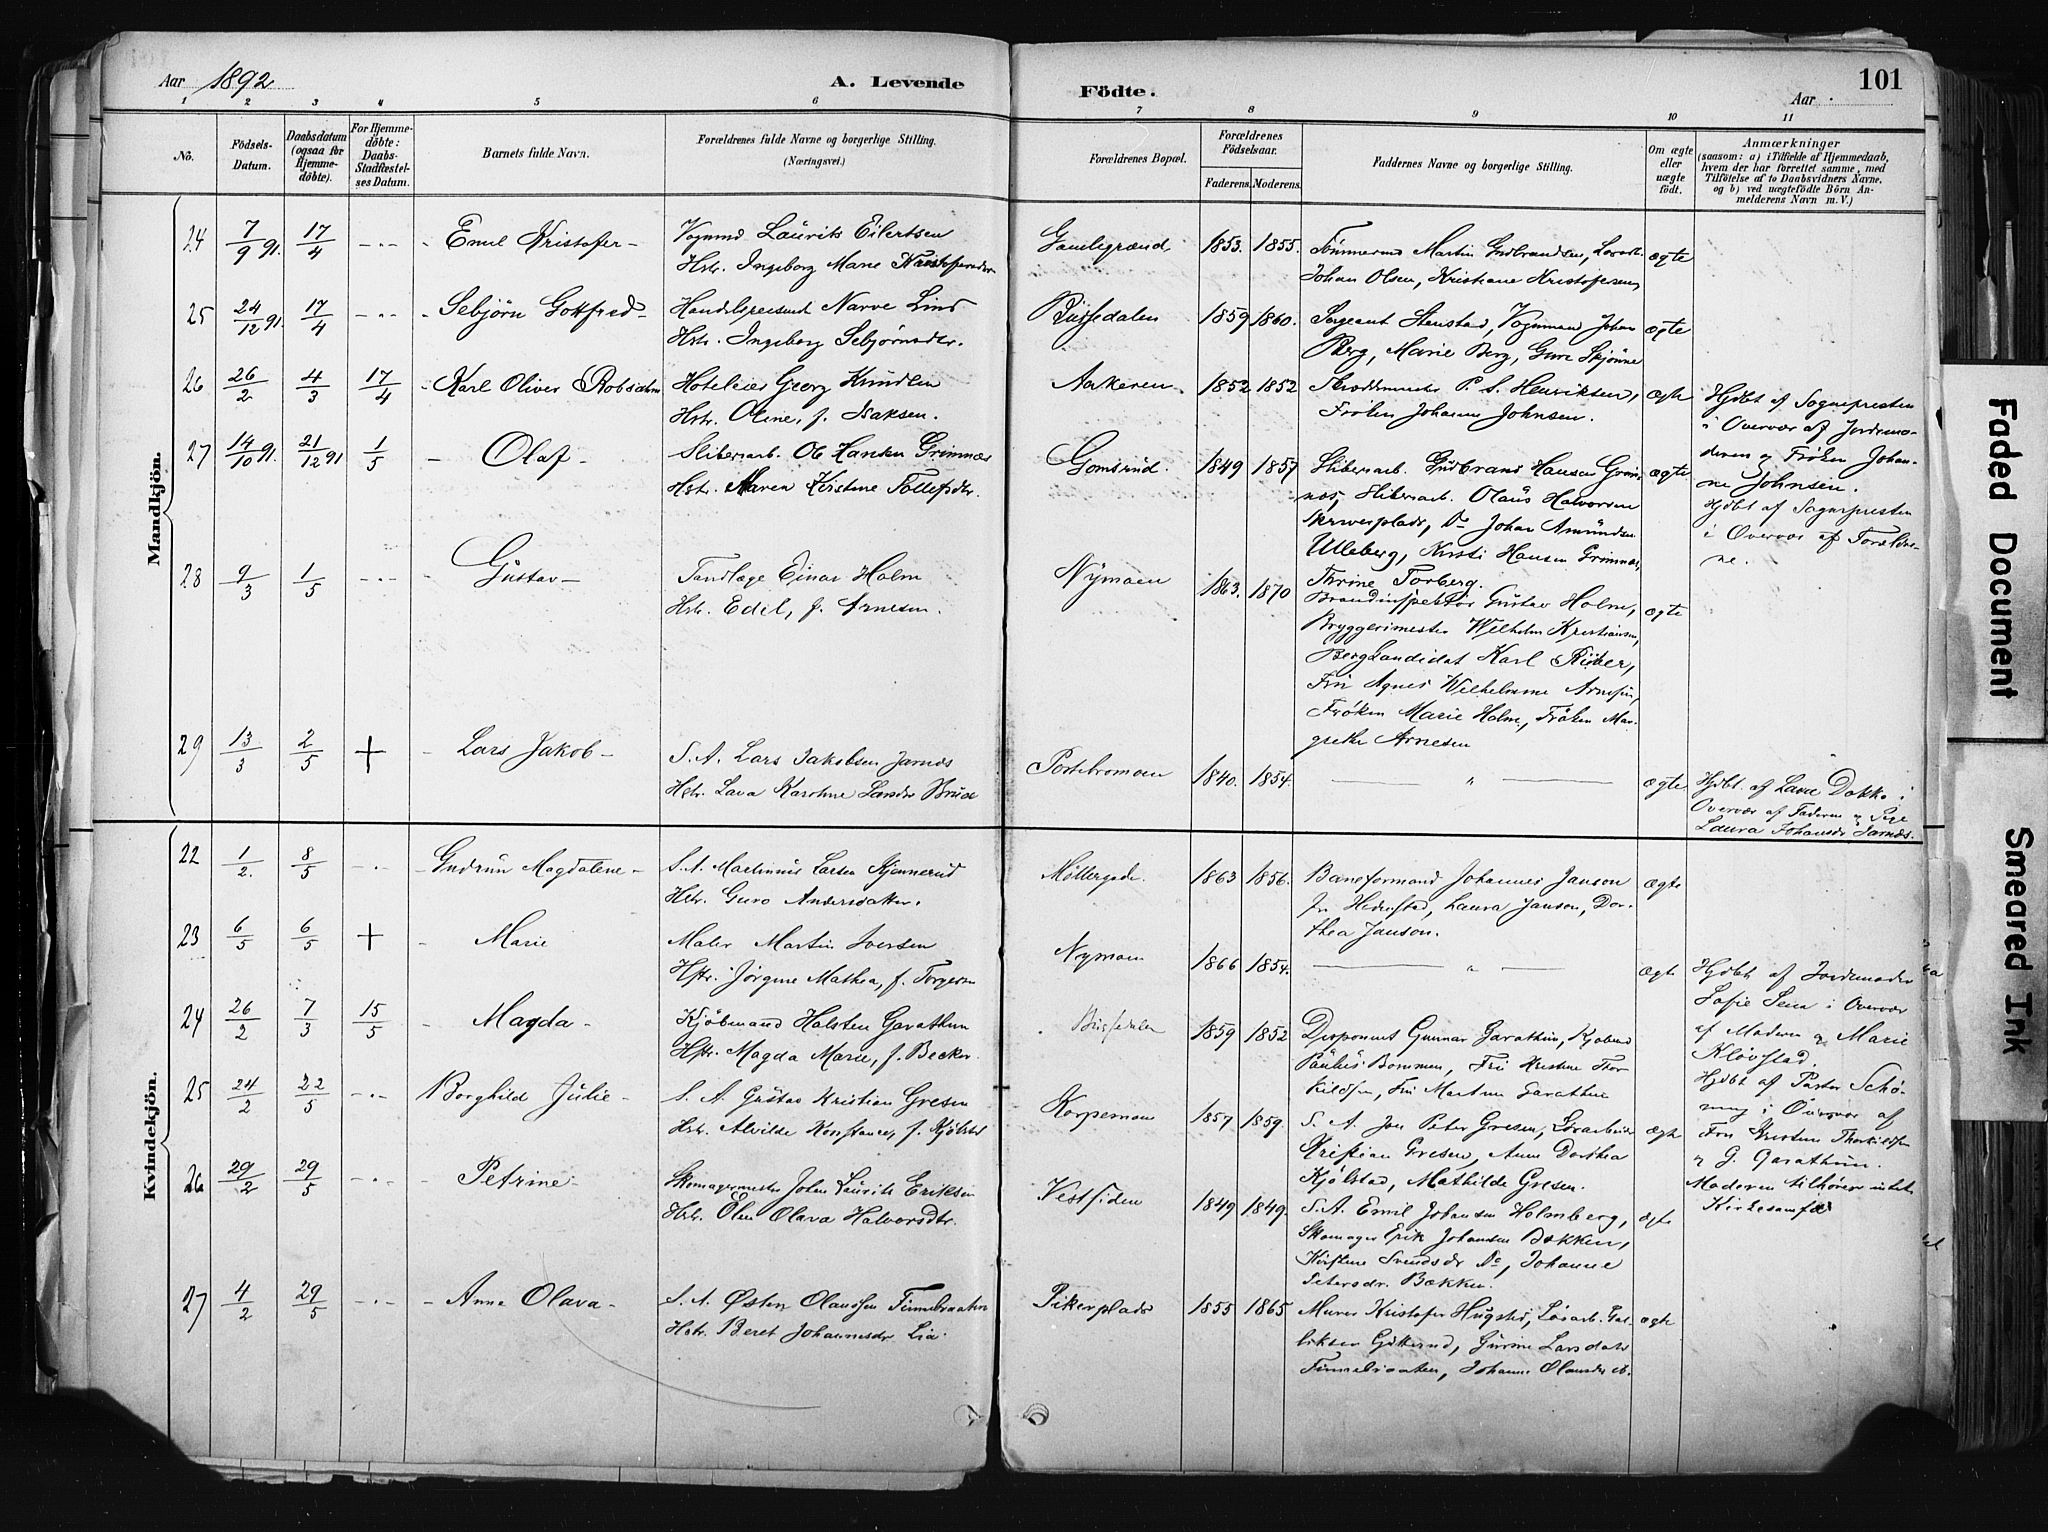 Aar 1892
A. Levende
Födte.
101
Aar
1 2 3 4 5 6 7 8 9 10 11
No.
Födsels-
Datum.
Daabsdatum
(ogsaa for
Hjemme-
döbte).
For Hjemme-
döbte:
Daabs-
Stadfæstel-
ses Datum.
Barnets fulde Navn.
Forældrenes fulde Navne og borgerlige Stilling.
(Næringsvei.)
Forældrenes Bopæl.
Forældrenes
Födselsaar.
Faderens. Moderens.
Faddernes Navne og borgerlige Stilling.
Om ægte
eller
uægte
födt.
Anmærkninger
(saasom: a) i Tilfælde af Hjemmedaab,
hvem der har forrettet samme, med
Tilföielse af to Daabsvidners Navne,
og b) ved uægtefödte Börn An-
melderens Navn m. V.)
Mandkjön.
24 7/9 91. 17/4 Emil Kristofer Vognmd Laurits Eilertsen
Hstr. Ingeborg Marie Kristofersdr
Gamlegrænd 1853. 1855. Tømmermd Martin Gudbrandsen,
Johan Olsen, Kristiane Kristofersen
ægte
25 24/12 91. 17/4 Sebjörn Gottfred Handelsbetjent Narve Lind
Hstr. Ingeborg Sebjørnsdtr.
Bussedalen 1859 1860. Sergeant Stenstad, Vognmand Johan
Berg, Marie Berg, Guro Skjønne
ægte
26 26/2 4/3 17/4 Karl Oliver Robsahm Hoteleier Georg Knudsen
Hstr. Oline, f. Isaksen.
Aakeren 1852 1852 P. S. Henriksen,
Frøken Johanne Johnsen.
ægte
Hjdbt af Sognepresten
i Overvær af Jordemo-
deren og Frøken Johan-
ne Johnsen.
27 14/10 91. 21/12 91 1/5 Olaf Sliberarb. Ole Hansen Grimnæs
Hstr. Maren Kristine Tollefsdtr.
Gomsrud. 1849 1857 Sliberarb. Gudbrand Hansen Grim-
næs, Sliberarb. Olaus Halvorsen
Skrueplads, Do Johan Amundsen
Ulleberg, Kirsti Hansen Grimnæs,
Thrine Torberg.
ægte
Hjdbt af Sognepresten
i Overvær af Forældre-
ne.
28 9/3 1/5 Gustav Tandlæge Einar Holm
Hstr. Edel, f. Arnesen.
Nymoen 1863. 1870 Brandinspektør Gustav Holm,
Bryggerimester Wilhelm Kristiansen,
Bergkandidat Karl Riiber,
Fru Agnes Wilhelmine Arnesen,
Frøken Marie Holm, Frøken Mar-
grethe Arnesen
ægte
29 13/3 2/5 + Lars Jakob S. A. Lars Jakobsen Jarnæs
Hstr. Lava Karoline Larsdr Brua
Portebromoen 1840. 1854. "
ægte
Hjdbt. af Lava Dokka i
Overvær af Faderen og Pige
Laura Johansdr Jarnæs.
Kvindekjön.
22 1/2. 8/5 Gudrun Magdalene S. A. Martinius Larsen Stjernerud
Hstr. Guro Andersdatter.
Møllergade. 1863 1856. Baneformand Johannes Janson
fr Hedenstad, Laura Janson, Dor-
thea Janson.
ægte
23 6/5 6/5 + Marie Maler Martin Iversen
Hstr. Jørgine Mathea, f. Torgersen
Nymoen 1866 1854. "
ægte
Hjdbt af Jordemoder
Sofie Seim i Overvær
af Moderen og Marie
Kløvstad.
24 26/2 7/3 15/5 Magda Kjøbmand Halsten Garathun
Hstr. Magda Marie, f. Becker
Bussedalen 1859 1852 Disponent Gunnar Garathun, Kjøbmd
Paulus Bommen, Fru Kristine Thor-
kildsen, Fru Martine Garathun
Hjdbt af Pastor Schø-
ning i Overvær af
Fru Kristine Thorkildsen
og G. Garathun.
25 24/2 22/5 Borghild Julie S. A. Gustav Kristian Gresen
Hstr. Alvilde Konstance, f. Kjølstad
Korpemoen 1857. 1859. S. A. Jon Peter Gresen, Løsarbeider
Kristian Gresen, Anne Dorthea
Kjølstad, Mathilde Gresen.
ægte
Moderen tilhører intet
Kirkesamfd
26 29/2 29/5 Petrine Skomagermester Johan Laurits Eriksen
Hstr. Elen Olava Halvorsdtr.
Vestsiden 1849 1849. S. A. Emil Johansen Holmberg,
Skomager Erik Johansen Bækken,
Kirstine Svendsdr Do, Johanne
Petersdr. Bækken.
ægte
27 4/2 29/5 Anne Olava S. A. Østen Olaussen Finnebraaten
Hstr. Beret Johannesdr Lia
Pikerplads 1855 1865 Murer Kristofer Hugstø, Løsarb. Gul-
liksen, Gurine Larsdatr
Finnebraaten, Johanne Olausdr ib.
ægte
Faded Document
Smeared Ink